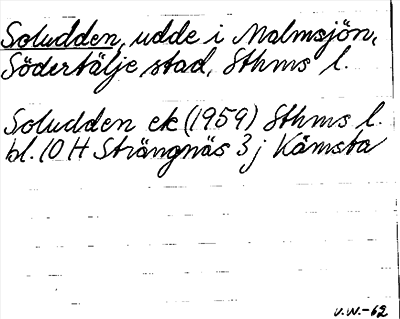 Soludden, udde i Malmsjön,
Södertälje stad, Sthms l.
Soludden ek (1959) Sthms l.
bl. 10 H Strängnäs 3 j Kämsta
V.W.-62